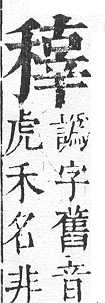 譌字舊音
虎禾名非